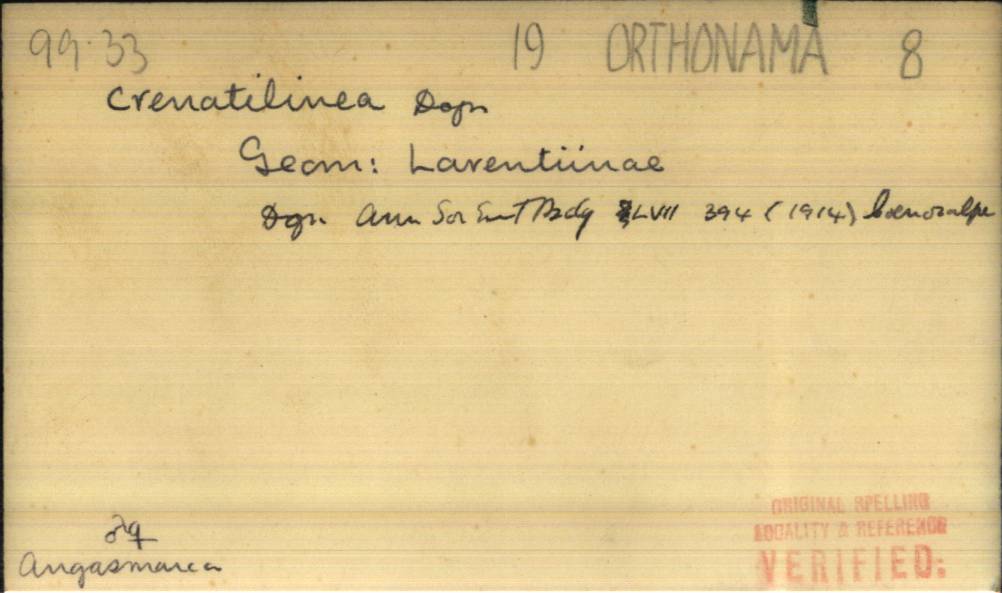 99.33 19 ORTHONAMA 8
crenatilinea Dogn
Geom: Larentiinae
Dgn. Ann Soc Ent Belg LVII 394 (1914) Coenocalpe
♂♀
Angasmarca
ORIGINAL SPELLING
LOCALITY & REFERENCE
VERIFIED: